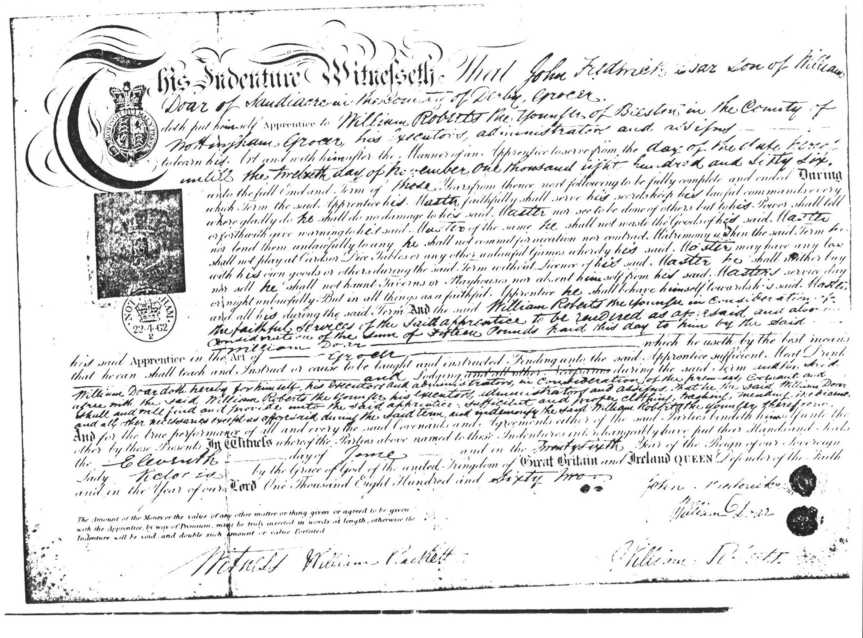 This Indenture Witnesseth That John Fredrick Doar Son of William
Doar of Sandiacre in the County of Derby, Grocer
doth put himself Apprentice to William Roberts the Younger of Beeston, in the County of
Nottingham Grocer his Executors, administrators and assigns
to learn his Art and with him after the Manner of an Apprentice to serve from the day of the date hereof
until the twelveth day of November One thousand eight hundred and Sixty Six,
unto the full End and Term of those Years from thence next following to be fully complete and ended During
which Term the said Apprentice his Master faithfully shall serve his secrets keep his lawful commands every
where gladly do he shall do no damage to his said Master nor see to be done of others but to his Power shall tell
or forthwith give warning to his said Master of the same he shall not waste the Goods of his said Master
nor lend them unlawfully to any he shall not commit fornication nor contract Matrimony within the said Term he
shall not play at Cards or Dice Tables or any other unlawful Games whereby his said Master may have any loss
with his own goods or others during the said Term without Licence of his said Master he shall neither buy
nor sell he shall not haunt Taverns or Playhouses nor absent himself from his said Masters service day
or night unlawfully But in all things as a faithful Apprentice he shall behave himself towards his said Master
and all his during the said Term And the said William Roberts the Younger in consideration of
the faithful services of the said apprentice to be rendered as aforesaid, and also in
consideration of the Sum of Fifteen Pounds paid this day to him by the said
William Doar
his said Apprentice in the Art of Grocer which he useth by the best means
that he can shall teach and Instruct or cause to be taught and instructed Finding unto the said Apprentice sufficient Meat Drink
and Lodging and all other Necessaries during the said Term And the said
William Doar doth hereby for himself, his executors and administrators, in consideration of the premises, Covenant and
agree with the said William Roberts the Younger his executors, administrators and assigns that he the said William Doar
shall and will find and provide unto the said apprentice sufficient and proper clothing, washing, mending, medicine
and all other necessaries except as aforesaid during the said term, and indemnify the said William Roberts the Younger therefrom
And for the true performance of all and every the said Covenants and Agreements either of the said Parties bindeth himself unto the
other by these Presents In Witness whereof the Parties above named to these Indentures interchangeably have put their Hands and Seals
the Eleventh day of June and in the twenty sixth Year of the Reign of our Sovereign
Lady Victoria by the Grace of God of the united Kingdom of Great Britain and Ireland QUEEN Defender of the Faith
and in the Year of our Lord One Thousand Eight Hundred and Sixty Two
NOTTINGHAM
22·4·62
2
The Amount or the Money or the value of any other matter or thing given or agreed to be given
with the Apprentice, by way of Premium, must be truly inserted in words at length, otherwise the
Indenture will be void, and double such amount or value forfeited
John Frederick
William Doar
Witness William
William